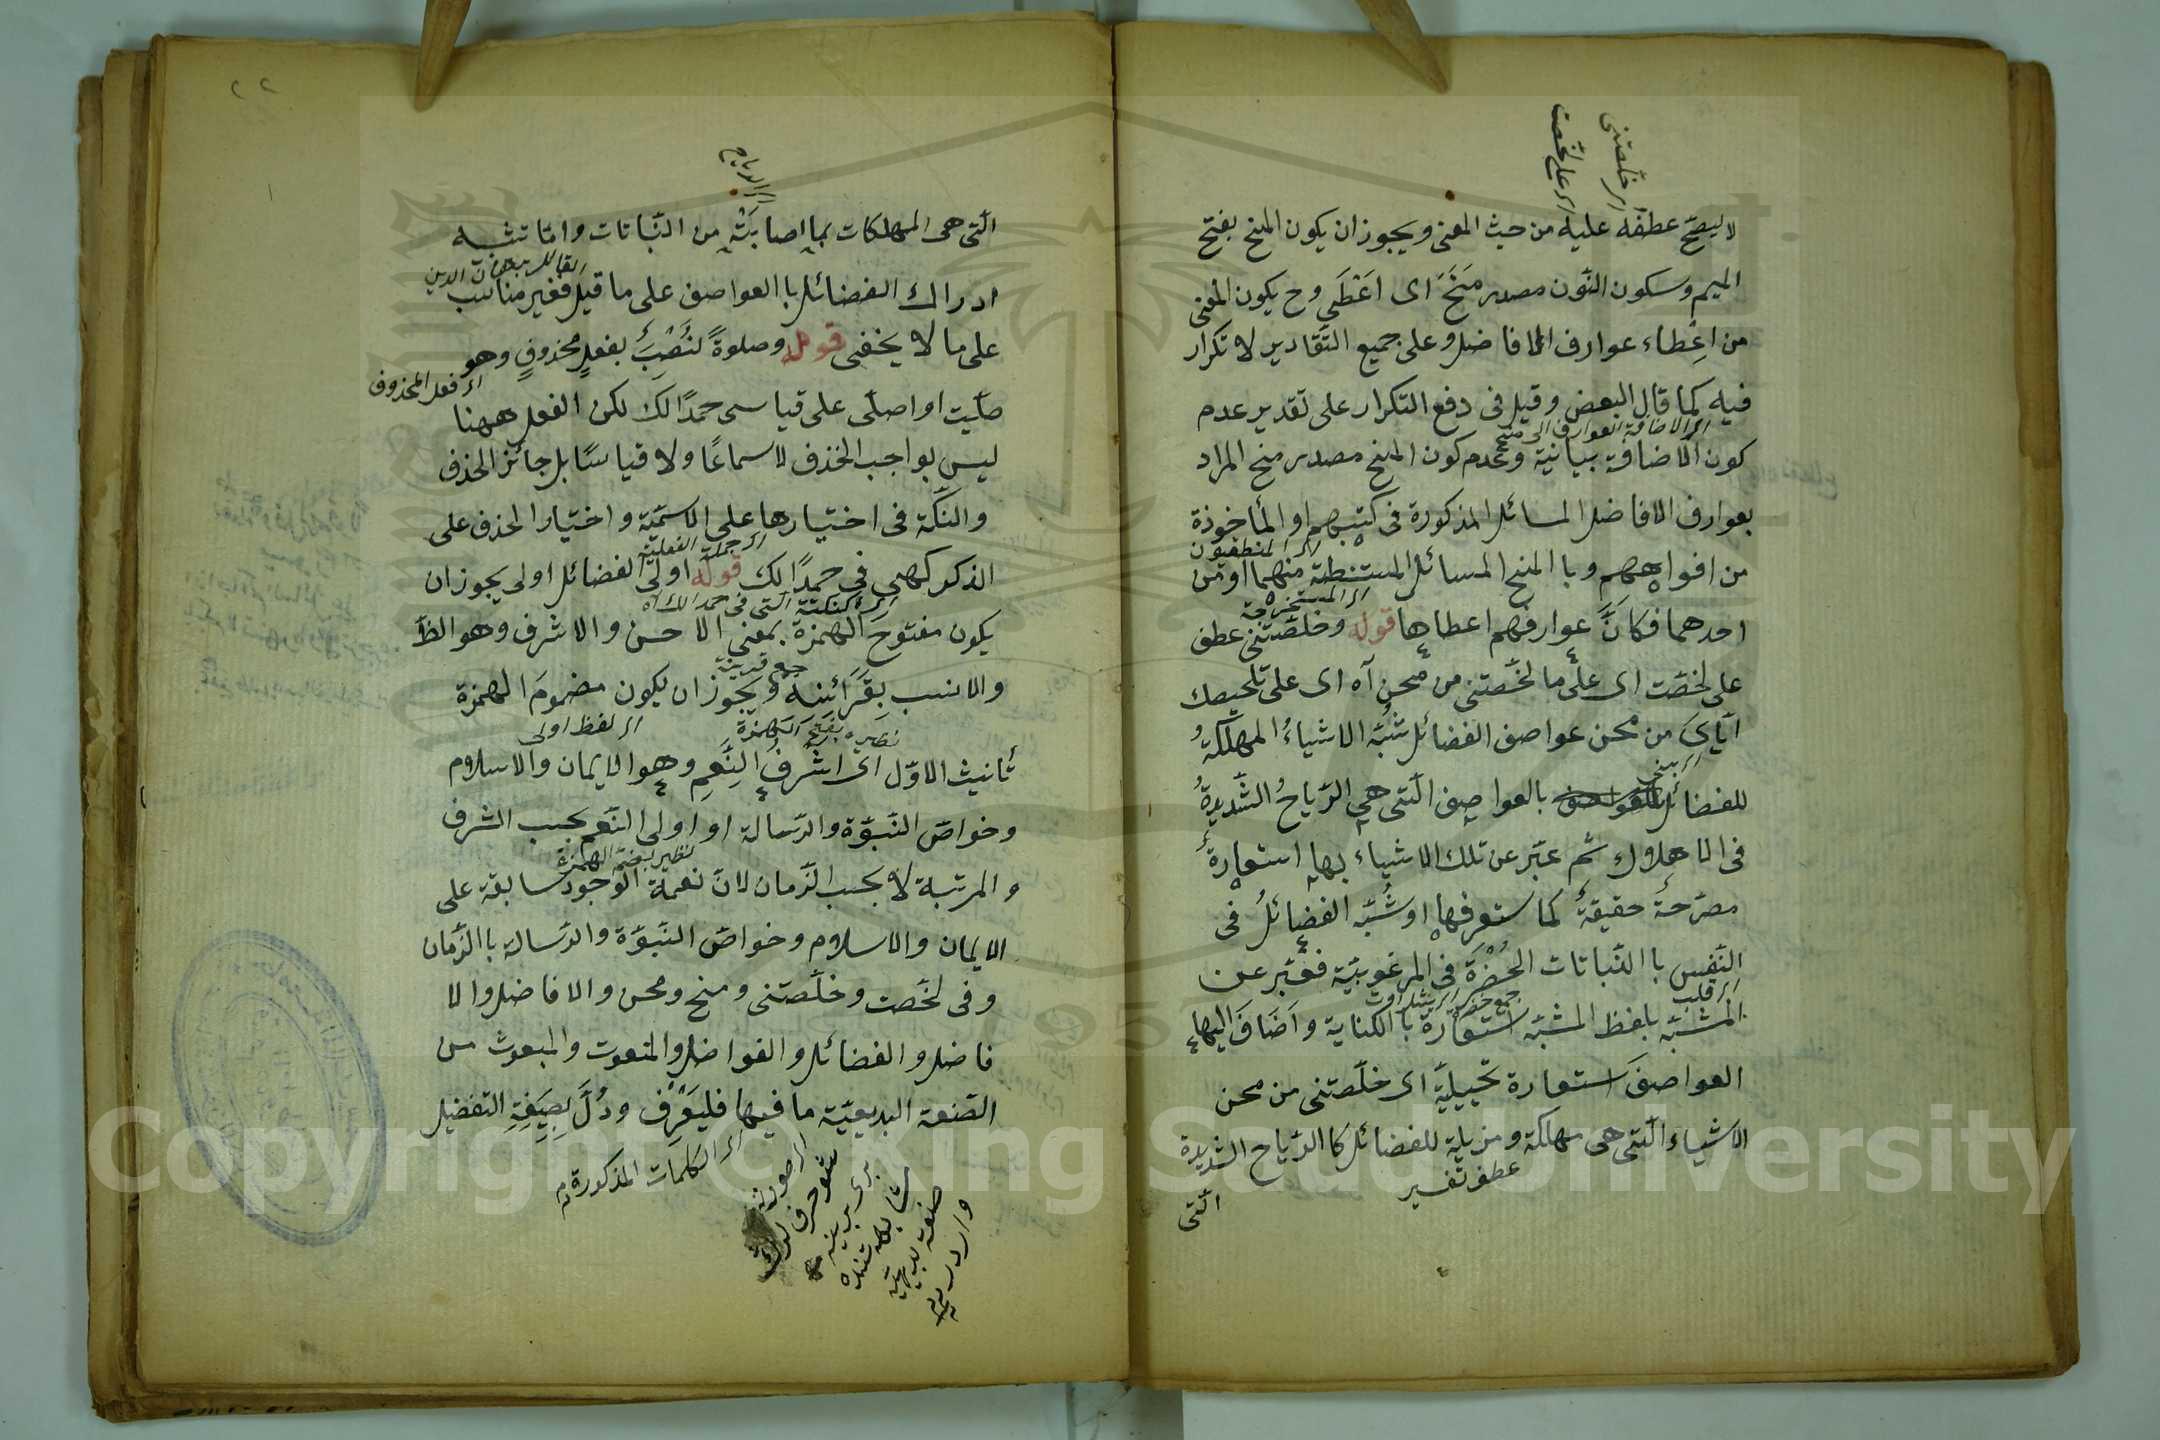 اى خلّصتنى
اى على لخّصت
لا يصحّ عطفه عليه من حيث المعنى ويجوز ان يكون المنح بفتح
الميم وسكون النّون مصدر مَنَحَ اى اَعْطَى وح يكون المعنى
من اِعْطاء عوارف الافاضل وعلى جميع التّقادير لا تكرار
فيه كما قال البعض وقيل فى دفع التكرار على تقدير عدم
اى الاضافة العوارف الى منح
كون الاضافة بيانية وعدم كون المنح مصدر منح المراد
بعوارف الافاضل المسائل المذكورة فى كتبهم او المأخوذة
اى المنطقيون
من افواههم وبا المنح المسائل المستنبطة منهما او من
اى المستخرجة
احدهما فكانّ عوارفهم اعطاها قوله وخلّصتنى عطف
على لخصّت اى على ما لخّصتنى من محن آه اى على تلخيصك
ايّاىَ من محن عواصف الفضائل شُبّه الاشياءُ المهلكةُ
للفضائل بالعواصف الّتى هى الرّياحُ الشّديدةُ
فى الاهلاك ثم عبّر عن تلك الاشياء بها استعارةً
مصرّحةً حقيقةً كما ستعرفها او شُبّه الفضائلُ فى
النّفس با النّباتات الخُضْرَة فى المرغوبيّة فعُبّر عن
اى قلب
المشبّه بلفظ المشبّه استعارة با الكناية واَضَافَ اليها
العواصفَ استعارة تخييليّة اى خلّصتنى من محن
الاشياء الّتى هى مهلكة ومزيلة للفضائل كا الرّياح الشديدة
عطف تفسير
الّتى
٢٢
اى الرياح
الّتى هى المهلكات بما اصابَتْه من النّباتات وامّا تشبيه
ادراك الفضائل با العواصف على ما قيل فغير مناسب
على ما لا يخفى قوله وصلوةً نُصِبَ بفعلٍ محذوفٍ وهو
اى فعل المحذوف
صلّيت او اصلّى على قياس حمدًا لك لكن الفعل ههنا
ليس بواجب الحذف لا سماعًا ولا قياسًا بل جائز الحذف
والنكّة فى اختيارها على الاسميّة واختيار الحذف على
اى جملة الفعلية
الذكر كهى فى حمدًا لك قوله اولى الفضائل اولى يجوز ان
اى كنكتة الّتى فى حمدا لك آه
يكون مفتوحَ الهمزة بمعنى الاحسن والاشرف وهو الظّ
جمع قرينة
والانسب بِقَرَائنه ويجوز ان يكون مضمومَ الهمزة
اى لفظ اولى
بفتح الهمزة
تأنيث الاوّل اى اشرف النِّعَمِ وهو الايمان والاسلام
وخواصّ النّبوّة والرّسالة او اولى النّعم بحسب الشرف
بضمّ الهمزة
والمرتبة لا بحسب الزّمان لانّ نعمة الوجود سابقة على
الايمان والاسلام وخواصّ النّبوّة والرّسالة با الزّمان
وفى لخّصت وخلّصتنى ومنح ومحن والافاضل والا
فاضل والفضائل والفواضل والمنعوت والمبعوث من
الصّنعة البديعيّة ما فيها فليَعْرِف ودُلَّ بِصيغةِ التفضيل
اى الكلمات المذكورة